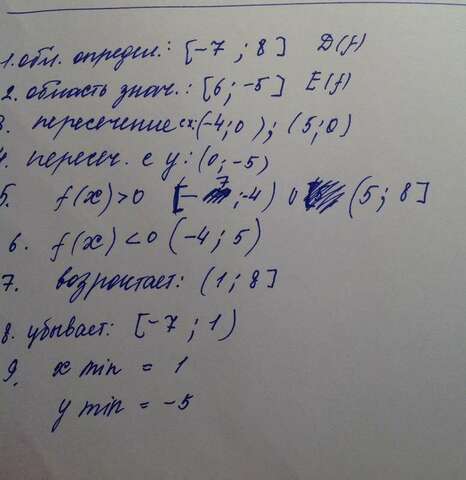 1. обл. определ.: [-7 ; 8] D(f)
2. область знач.: [6 ; -5] E(f)
3. пересечение с x: (-4; 0) ; (5; 0)
4. пересеч. с y: (0; -5)
5. f(x)>0 [-7 ; -4) ∪ (5; 8]
6. f(x) <0 (-4; 5)
7. возростает: (1; 8]
8. убывает: [-7 ; 1)
9. x min = 1
y min = -5